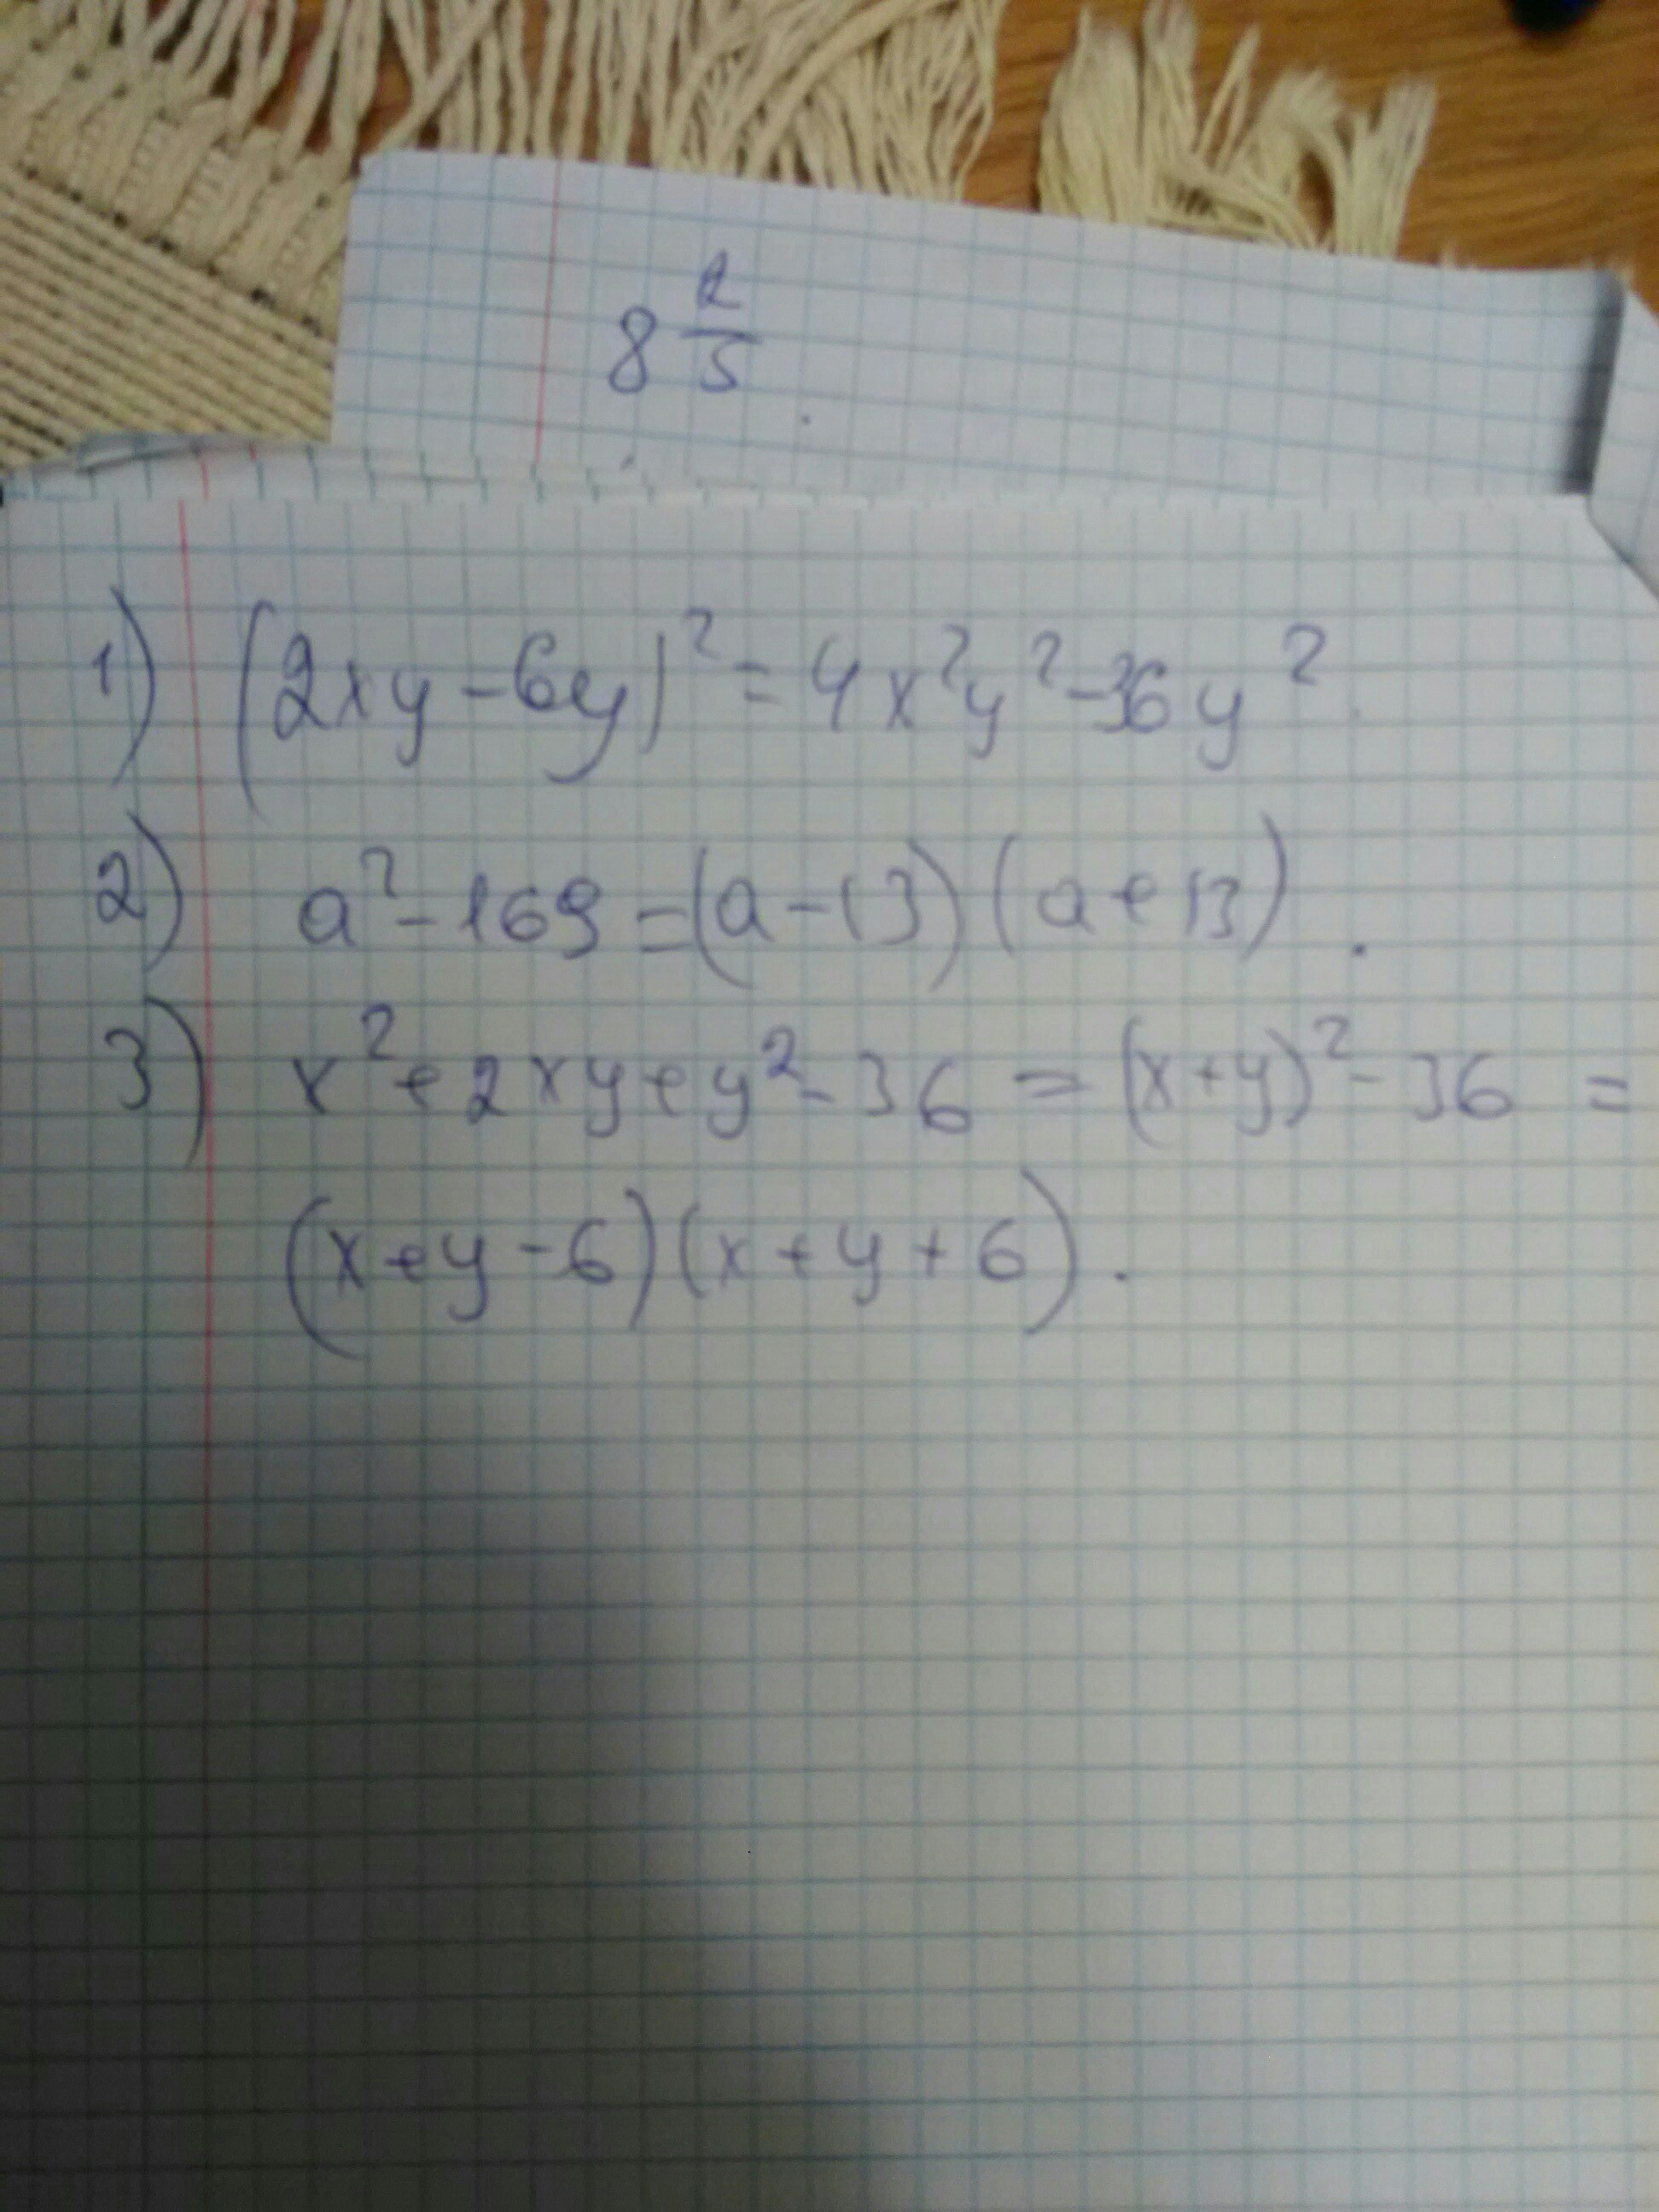 8 2/5
1) (2xy-6y)²=4x²y²-36y².
2) a²-169=(a-13)(a+13).
3) x²+2xy+y²-36=(x+y)²-36=
(x+y-6)(x+y+6).